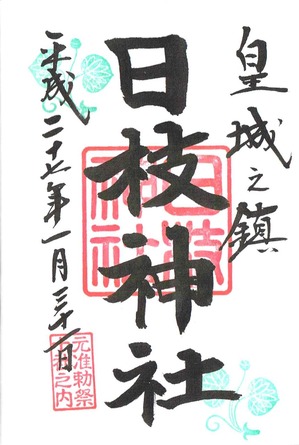 皇城之鎮
日枝神社
日枝神社
平成二十七年一月三十一日
元准勅祭
十社之内